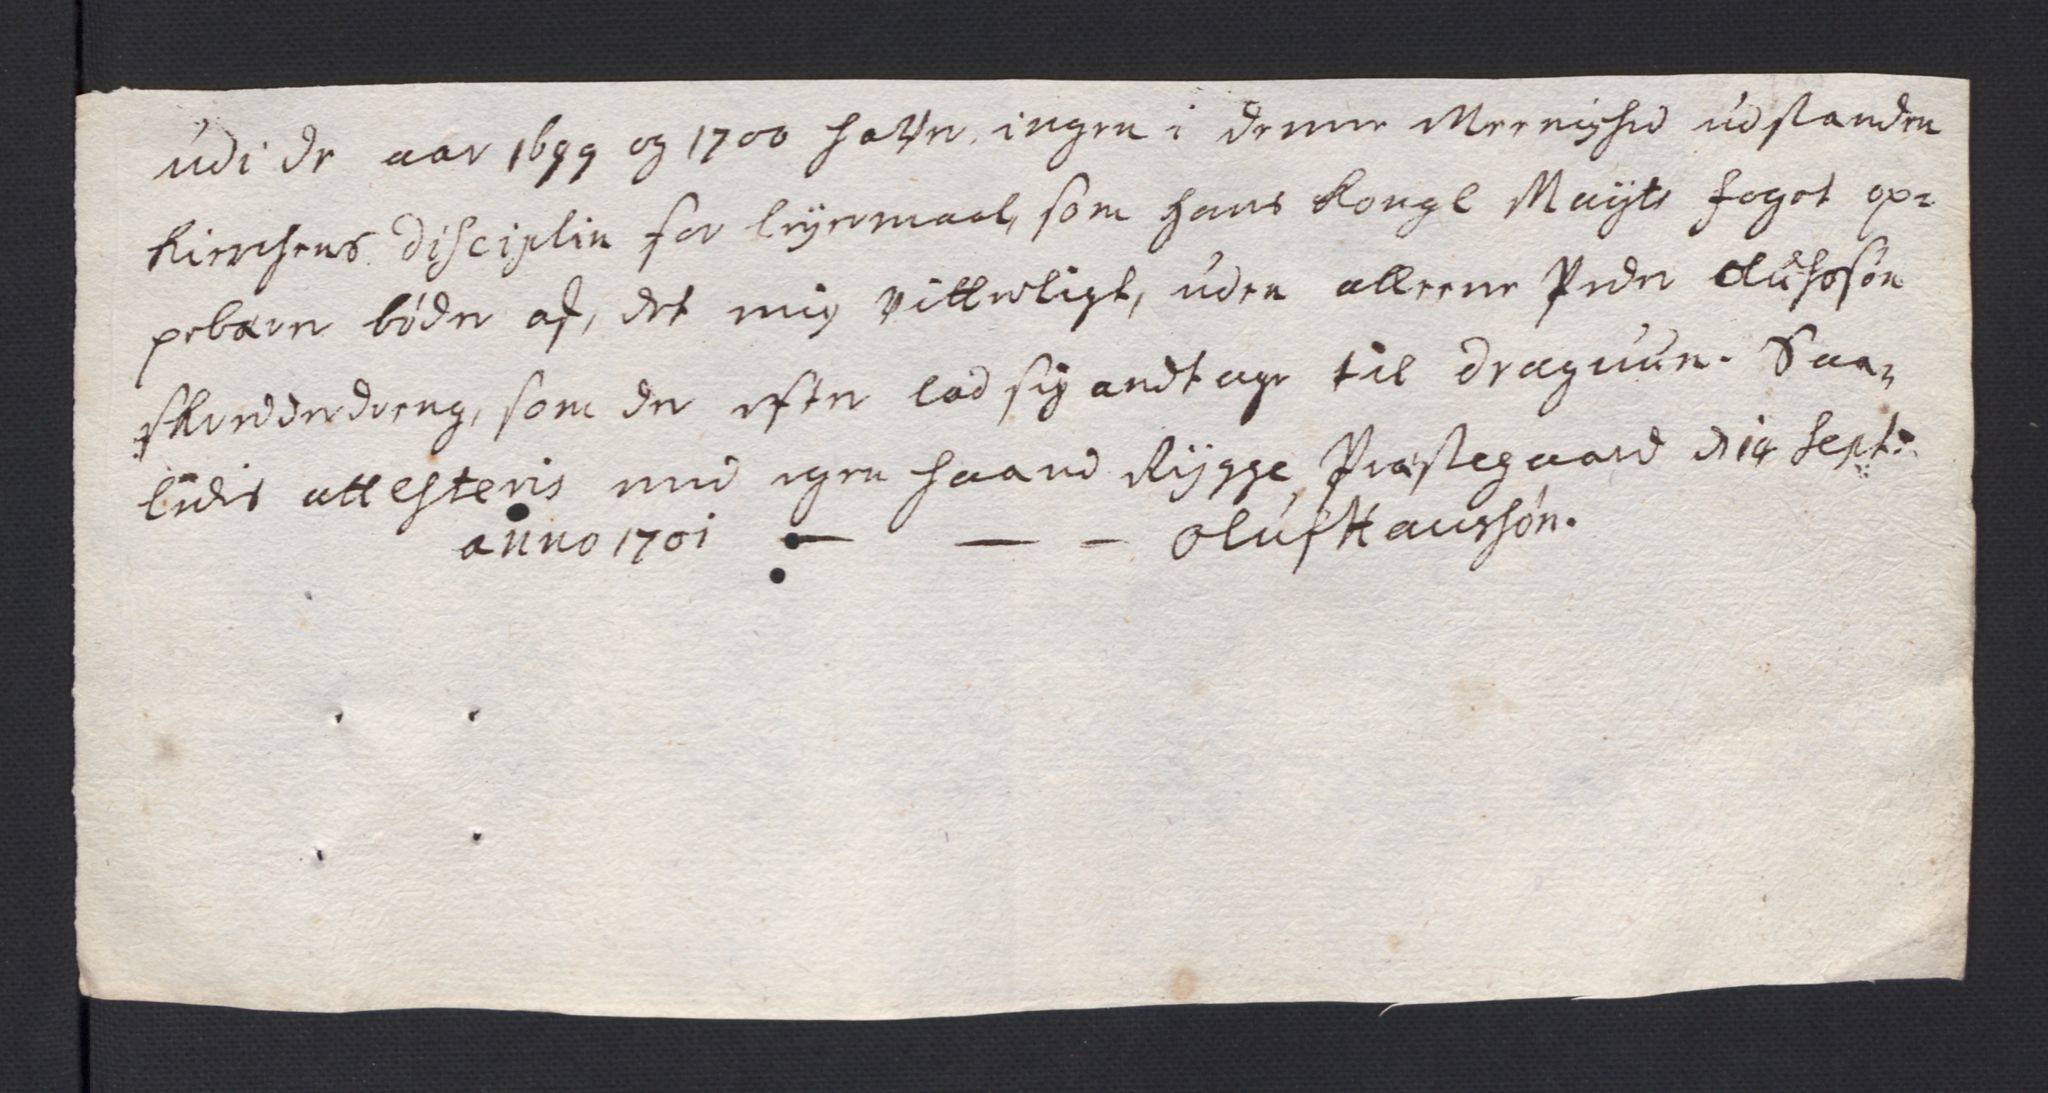 udi de aar 1699 og 1700 hafver ingen i denne Meenighed udstanden
Kierchens disciplin for leyermaal, som hans Kongl Mayts foget op-
pebærer bøder af, det mig vitterligt, uden alleene Peder Olufssøn
skredderdreng, som der efter lod sig andtage til draguun. Saa-
ledis attesteris med egen haand Rygge Præstegaard d 14 Sept:
anno 1701 — — — Oluf Hanssøn.